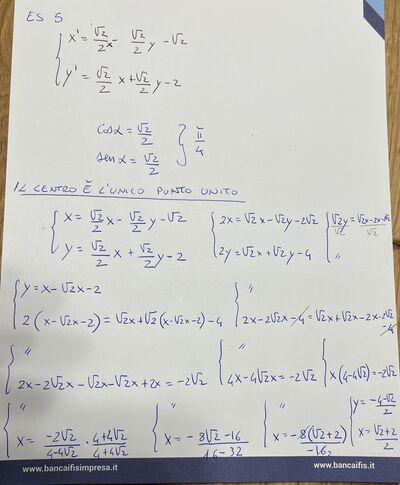 ES 5
x' = √2/2 x - √2/2 y - √2
y' = √2/2 x + √2/2 y - 2
cos α = √2/2
sen α = √2/2 } π/4
IL CENTRO È L'UNICO PUNTO UNITO
{ x = √2/2 x - √2/2 y - √2 { 2x = √2x - √2y - 2√2 { √2y/√2 = √2x - 2x - 2√2/√2
{ y = √2/2 x + √2/2 y - 2 { 2y = √2x + √2y - 4 { "
{ y = x - √2x - 2 { "
{ 2(x - √2x - 2) = √2x + √2(x - √2x - 2) - 4 { 2x - 2√2x - 4 = √2x + √2x - 2x - 2√2 - 4
{ " { " {
{ 2x - 2√2x - √2x - √2x + 2x = -2√2 { 4x - 4√2x = -2√2 { x(4 - 4√2) = -2√2
{ " { " { " { y = -4-√2/2
{ x = -2√2/4-4√2 · 4+4√2/4+4√2 { x = - 8√2-16/16-32 { x = -8(√2+2)/-16₂ { x = √2+2/2
www.bancaifisimpresa.it www.bancaifis.it